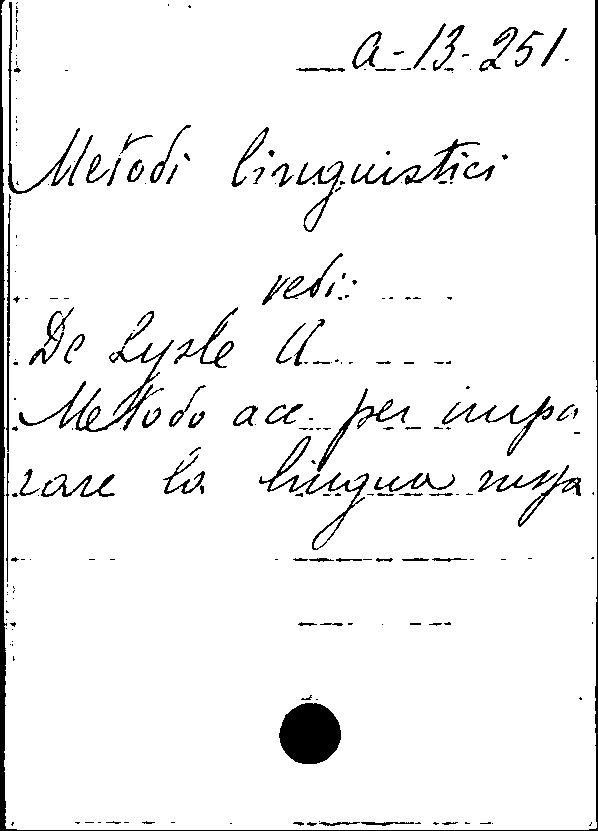 A-13-251.
Metodi linguistici
vedi:
De Lysle A
Metodo acc. per impa
rare la lingua russa